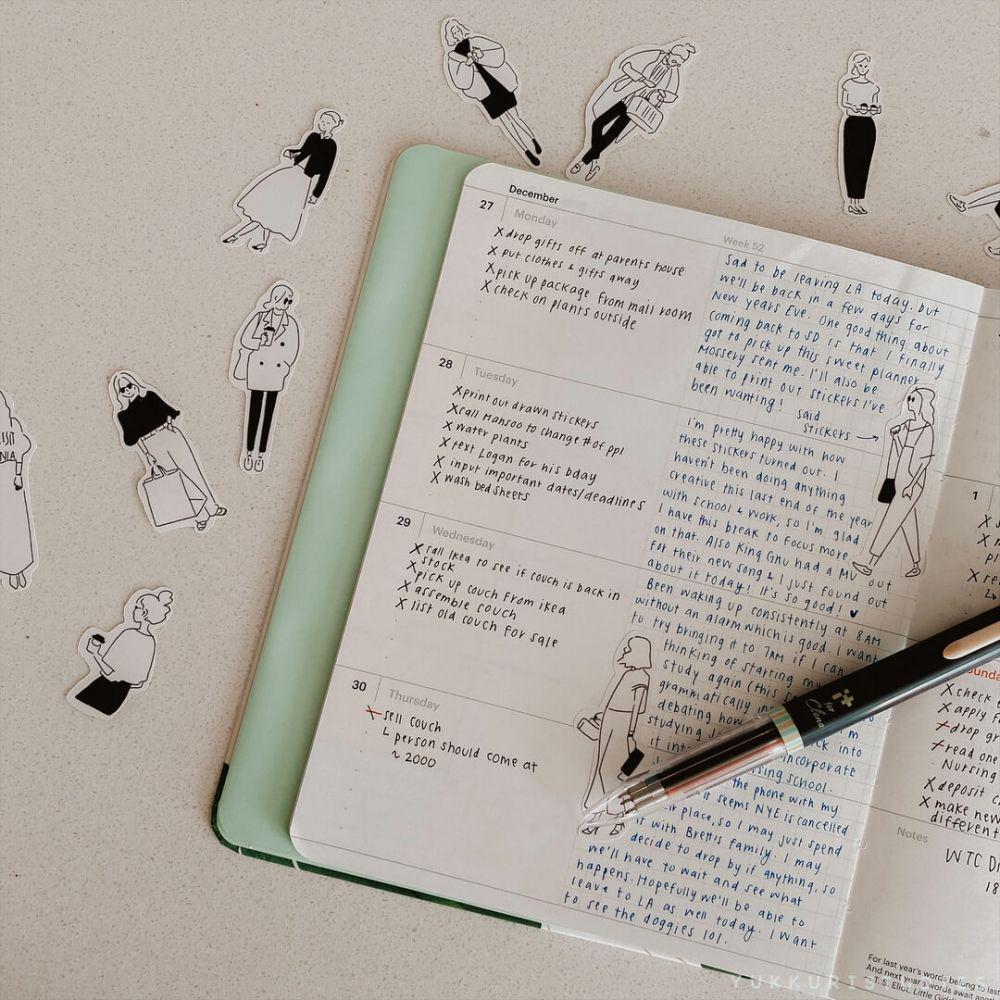 December
27 Monday
X drop gifts off at parents house
X put clothes & gifts away
X pick up package from mail room
X check on plants outside
Week 52
Sad to be leaving LA today, but
we'll be back in a few days for
New Years Eve. One good thing about
coming back to SD is that I finally
got to pick up this sweet planner
Mossery sent me. I'll also be
able to print out stickers I've
been wanting!
said
stickers →
28 Tuesday
X print out drawn stickers
X call Mansoo to change # of ppl
X water plants
X text Logan for his bday
X input important dates/deadlines
X wash bed sheets
I'm pretty happy with how
these stickers turned out. I
haven't been doing anything
creative this last end of the year
with school & work, so I'm glad
I have this break to focus more
on that. Also King Gnu had a MV
for their new song & I just found out
about it today! It's so good! ♥
29 Wednesday
X call Ikea to see if couch is back in
stock
X pick up couch from ikea
X assemble couch
X list old couch for sale
Been waking up consistently at 8AM
without an alarm which is good. I want
to try bringing it to 7AM if I can
thinking of starting my
study again (this
grammatically
debating how
studying back into
it incorporate
school.
30 Thursday
X sell couch
↳ person should come at
~ 2000
the phone with my
it seems NYE is cancelled
place, so I may just spend
it with Brett's family. I may
decide to drop by if anything, so
we'll have to wait and see what
happens. Hopefully we'll be able to
leave to LA as well today. I want
to see the doggies lol.
it+
for
Clena
1
X check
X apply
X drop
X read one
Nursing
X deposit
X make new
different
Notes
WTC
18
For last year's words belong to last
And next year's words await
T. S. Eliot, Little
YUKKURIS